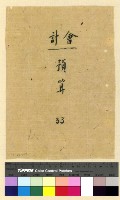 會計
預算
33
TIFFEN Color Control Patches